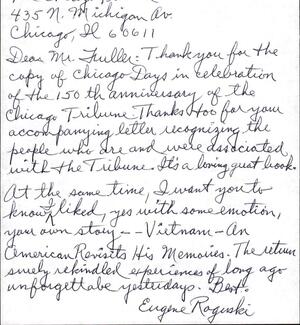 435 N. Michigan Av.
Chicago, Il 60611
Dear Mr. Fuller: Thank you for the
copy of Chicago Days in celebration
of the 150th anniversary of the
Chicago Tribune. Thanks too for your
accompanying letter recognizing the
people who are and were associated
with the Tribune. It's a loving guest book.
At the same time, I want you to
know I liked, yes with some emotion,
your own story -- Vietnam - An
American Revisits His Memories. The return
surely rekindled experiences of long ago
unforgettabe yesterdays. Best.
Eugene Roguski